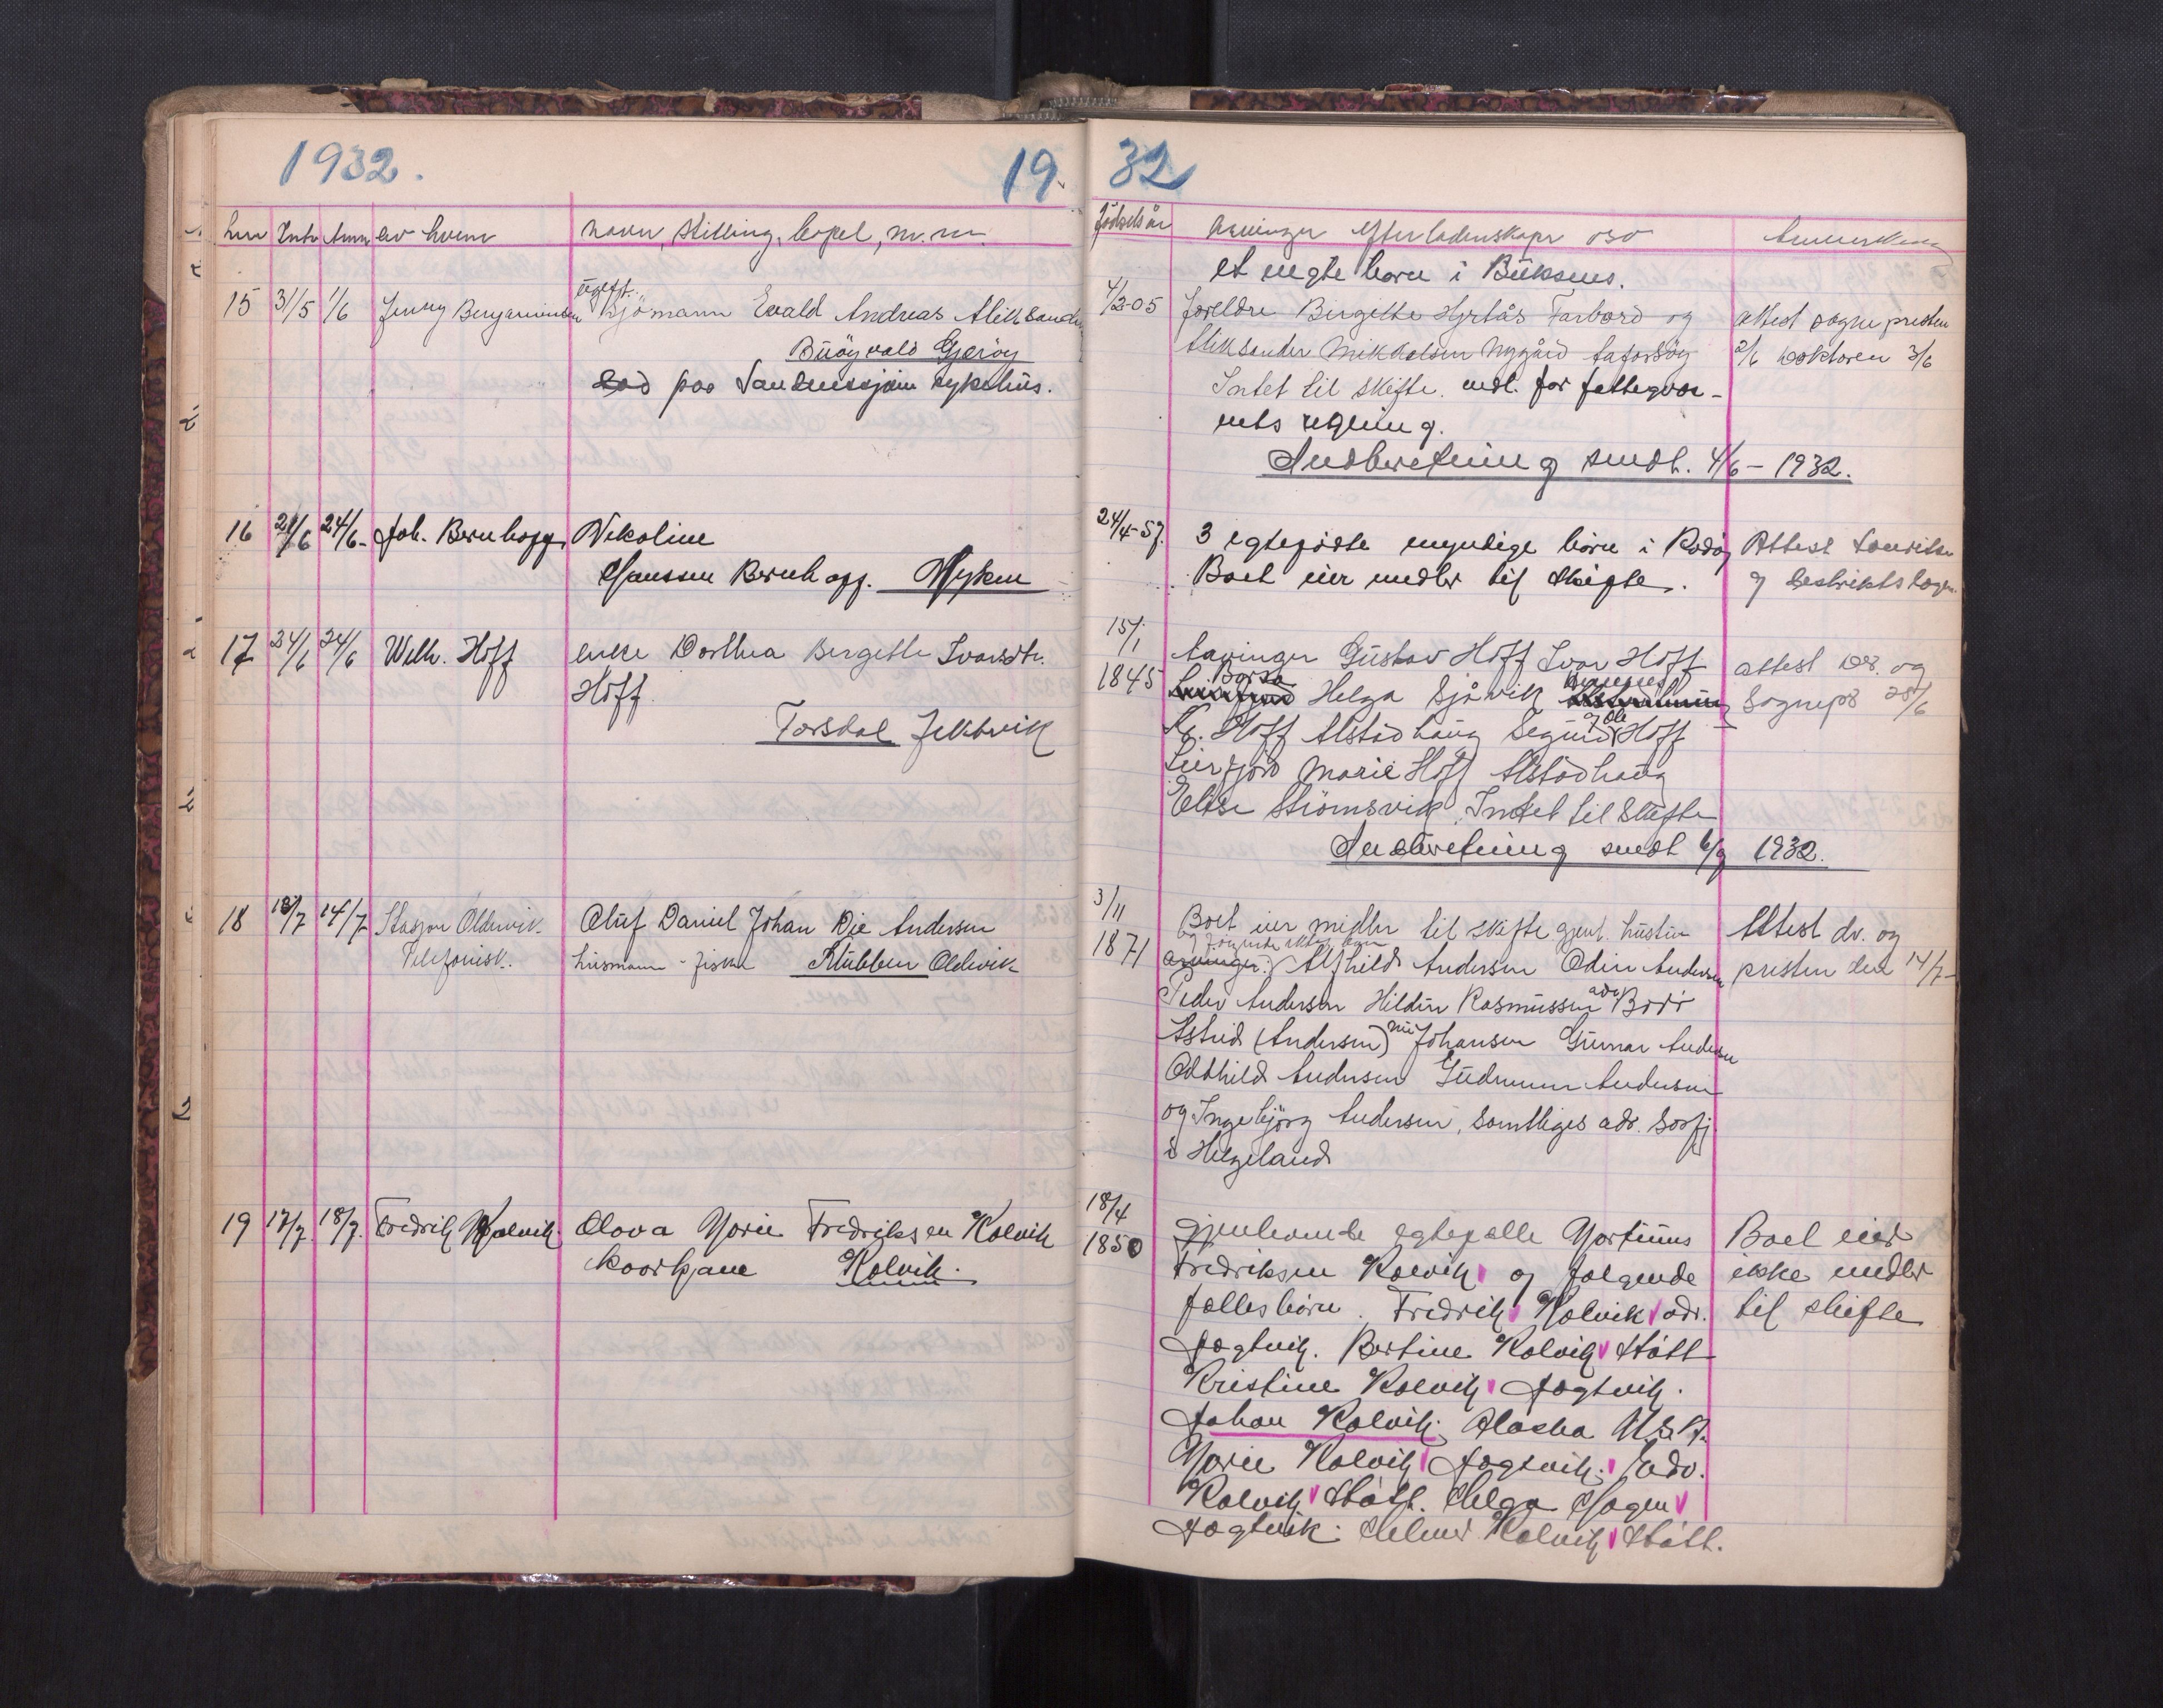 1932.
19.
32
Lnr Inntr Anm av hvem
navn, Stilling, bopel, m.m.
fødselsår
Arvinger Efterladenskaper oso
Anmerkning
et uegte barn i Buksnes.
15 31/5 1/6 Jenny Benjaminsen
ugift.
Sjömann Evald Andreas Aleksander
Buöyvald Gjeröy
död paa Sandnessjøen sykehus.
4/2-05 foreldre Birgitte Hjrtås Farbord og
Aleksander Mikkalsen Nygård
Intet til skifte. for fattigvæ-
nets regning.
Indberetning sendt. 4/6 - 1932.
attest sogne presten
2/6 Doktoren 3/6
16 21/6 24/6 - Joh. Bernhoff,
Nekoline
Hanssen Bernhoff. Myken
24/4-57. 3 egtefödte myndige börn i Rödöy
Boet eier midler til skifte.
Attest
og Destriktslægen
17 24/6 24/6 Welh. Hoff
enke Dorthea Bergette Ivarsdtr.
Hoff
Forsdal Jektvik
15/1
1845
Arvinger Gustav Hoff Ivar Hoff
Helga Sjåvik
Hoff Alstadhaug Segurd og Ole Hoff
Leirfjord Marie Hoff Alstadhaug
Elise Strömsvik Intet til Skifte
Indberetning sendt 6/9 1932.
attest Dr. og
Sognepr 25/6
18 13/7 14/7 Stasjon Oldervik.
Telefonisk.
Oluf Daniel Johan Oje Andersen
husmann - fisker Stubben Oldervik
3/11
1871
Boet eier midler til skifte gjenl. hustru
og
arvinger: Alfhild Andersen Odin Andersen
Peder Andersen Hildur Rasmussen adr Bodö
Astrid (Andersen) nu Johansen Gunnar Andersen
Oddhild Andersen Gudrunn Andersen
og Ingebjörg Andersen, samtliges adr. Sorfj
i Helgeland
Attest dr. og
presten den 14/7-
19 17/7. 18/7. Fredrik Kolvik
Olova Marie Fredriksen Kolvik
Kaarkone Kolvik.
18/4
1850
gjenlevende egtefelle Martinus
Fredriksen Kolvik og følgende
fellesbörn. Fredrik Kolvik adr.
Jogtvik. Bertine Kolvik Stött
Kristine Kolvik Jogtvik.
Johan Kolvik. Alaska U.S.A.
Marie Kolvik Jogtvik.
Kolvik Stött. Helga Hagen
Jogtvik. Helmer Kolvik Stött.
Boet eier
ikke midler
til skifte